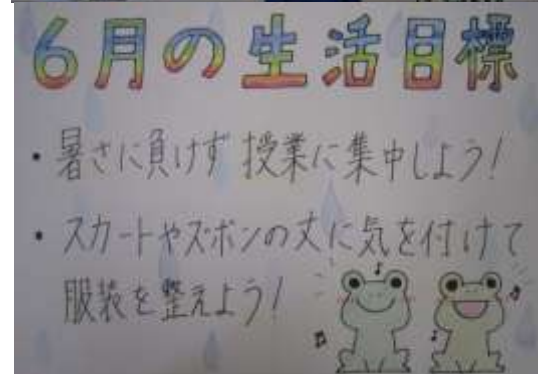 6月の生活目標
・暑さに負けず 授業に集中しよう!
・スカートやズボンの丈に気を付けて
服装を整えよう!